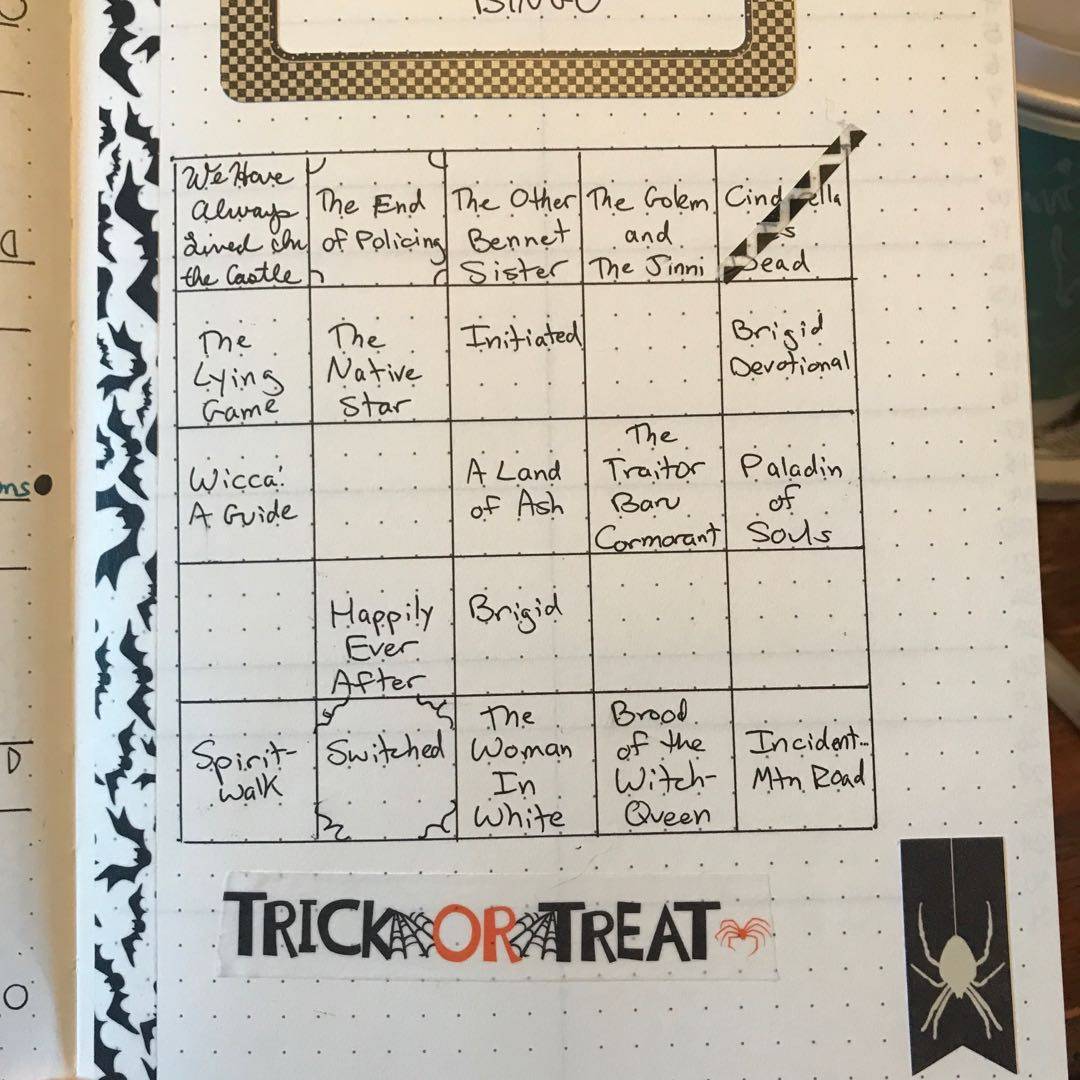 BINGO
We Have
Always
Lived In
the Castle
The End
of Policing
The Other
Bennet
Sister
The Golem
and
The Jinni
Dead
The
Lying
Game
The
Native
Star
Initiated
Brigid
Devotional
Wicca:
A Guide
A Land
of Ash
The
Traitor
Baru
Cormorant
Paladin
of
Souls
Happily
Ever
After
Brigid
Spirit-
walk
Switched
The
Woman
In
White
Brood
of the
Witch-
Queen
Incident...
Mtn Road
TRICK OR TREAT
ms
D
D
O